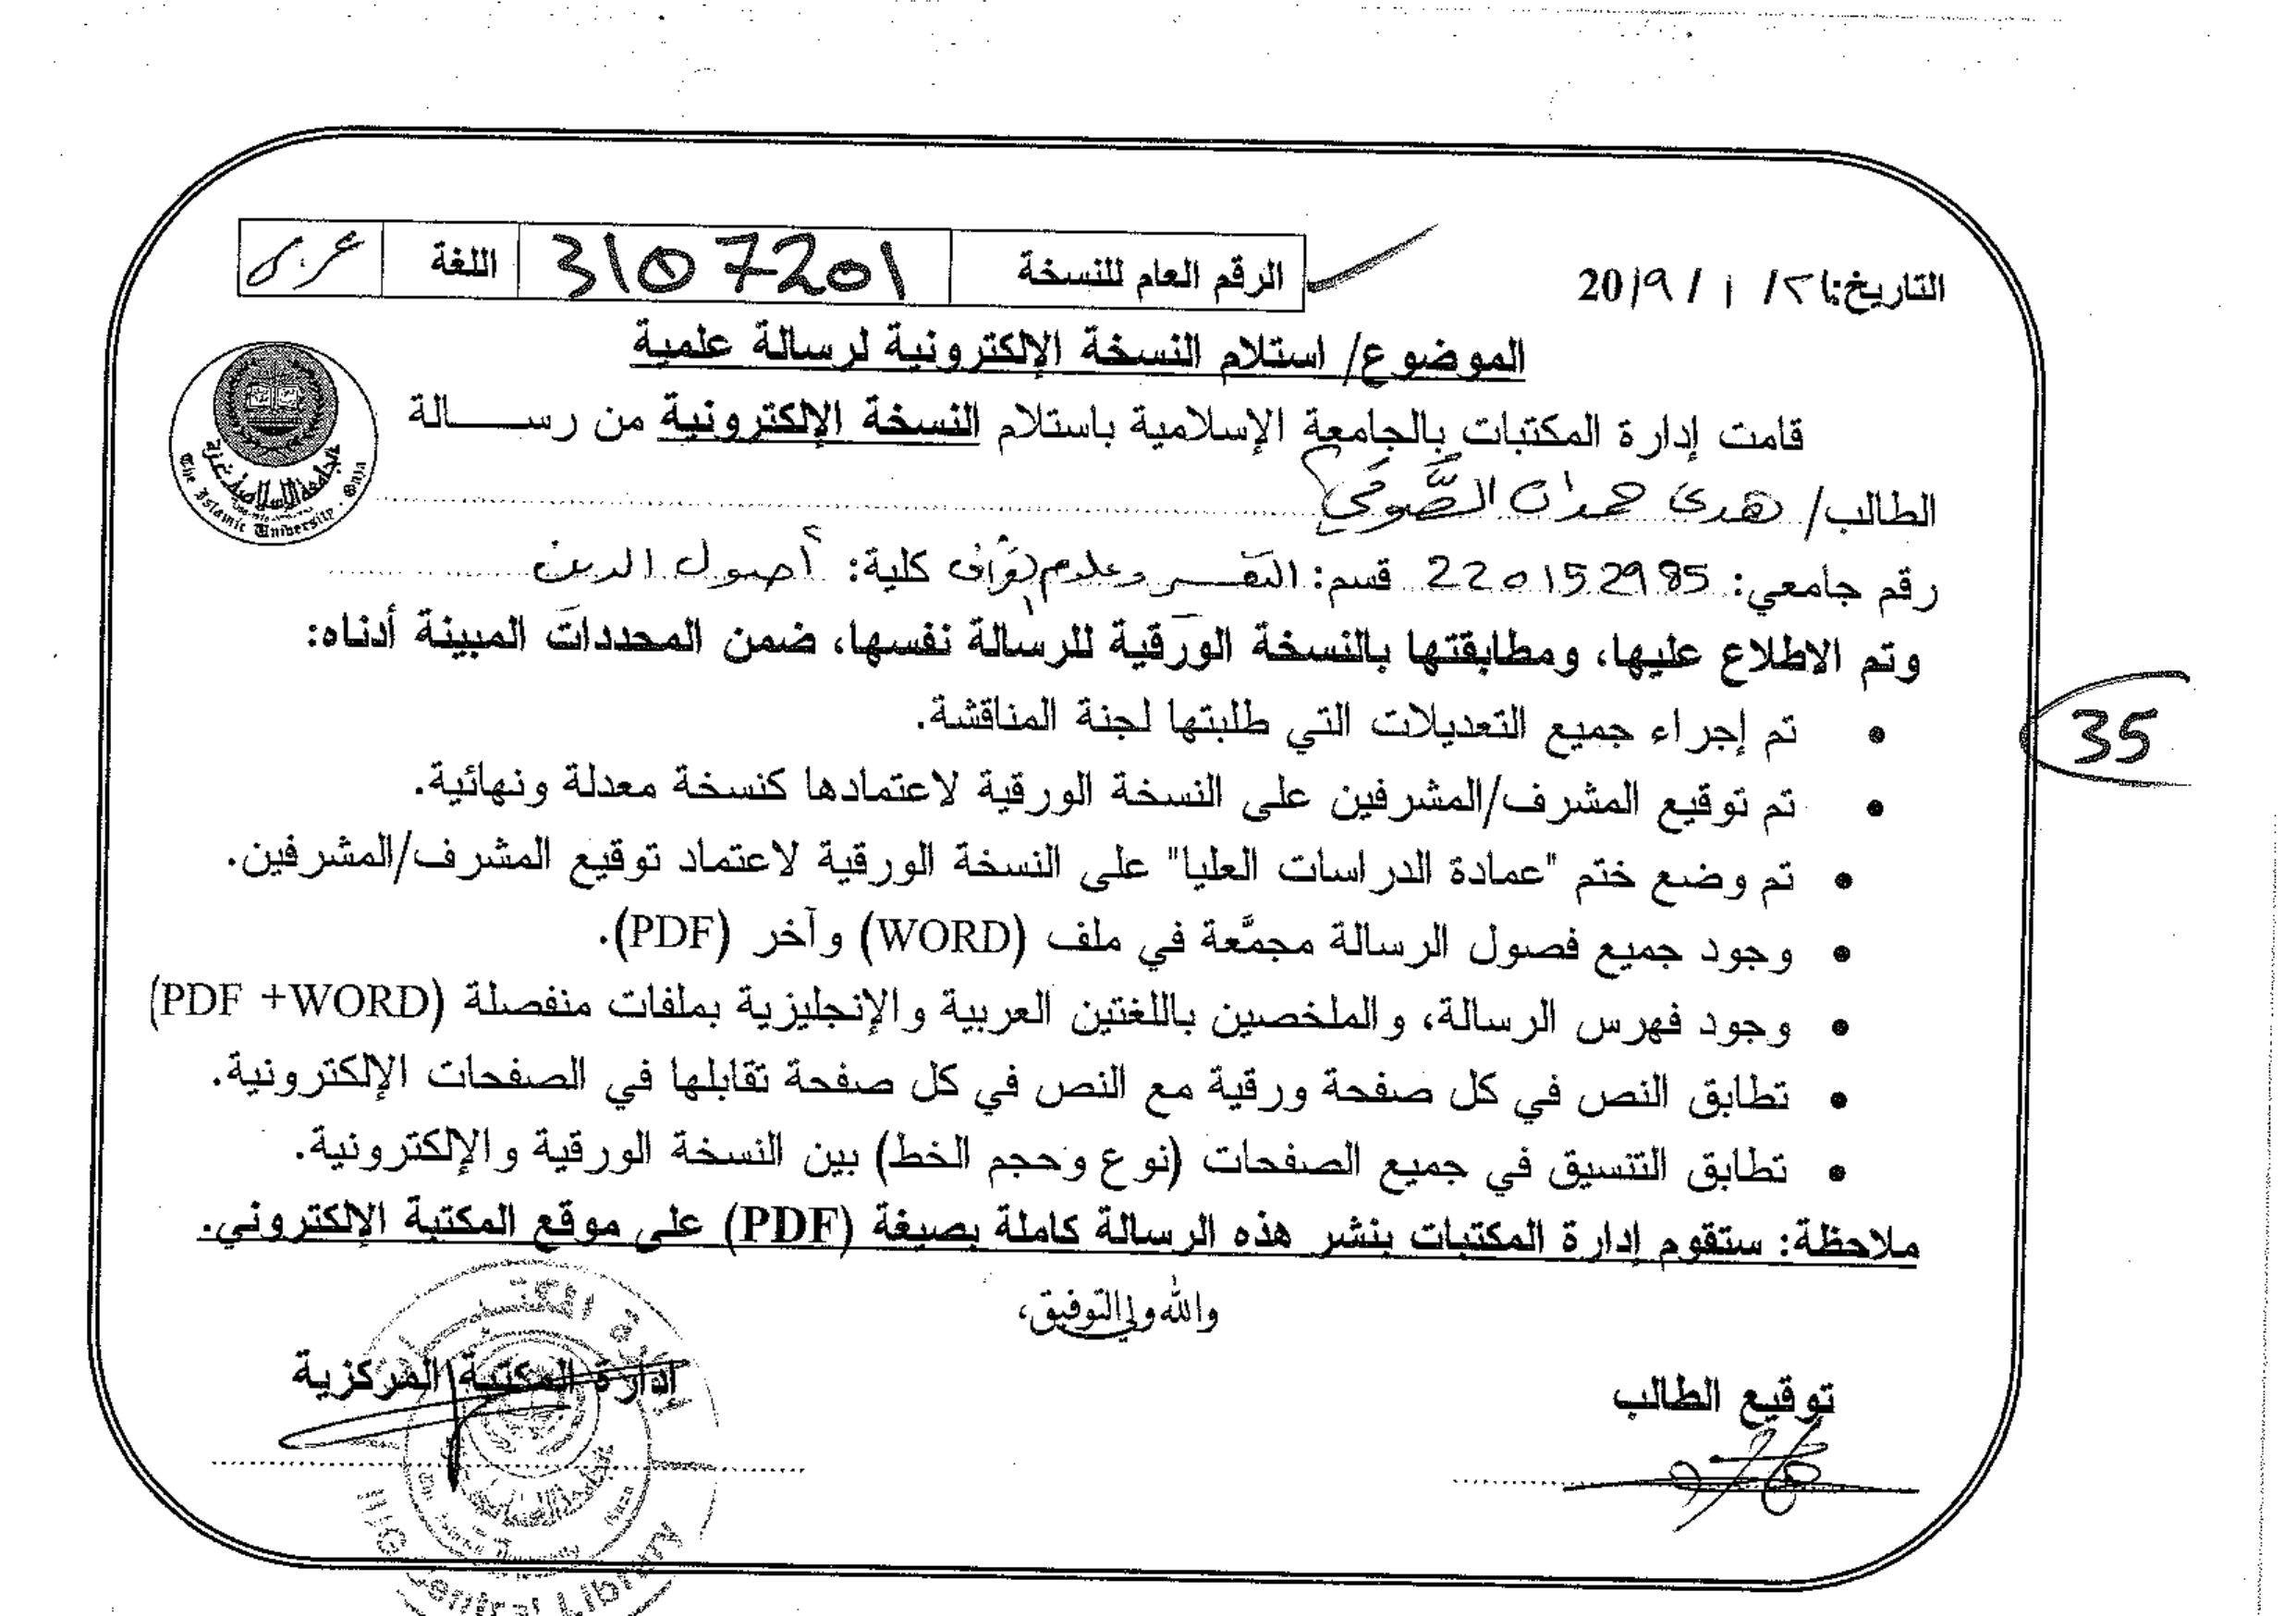 التاريخ: ٢١/ ١ / 20١٩
الرقم العام للنسخة 3107201 اللغة عربي
الموضوع/ استلام النسخة الإلكترونية لرسالة علمية
قامت إدارة المكتبات بالجامعة الإسلامية باستلام النسخة الإلكترونية من رســـالة
الطالب/ هدى حمدان
رقم جامعي: 220152985 قسم: التفسير وعلوم القرآن كلية: أصول الدين
وتم الاطلاع عليها، ومطابقتها بالنسخة الورقية للرسالة نفسها، ضمن المحددات المبينة أدناه:
• تم إجراء جميع التعديلات التي طلبتها لجنة المناقشة.
35
• تم توقيع المشرف/المشرفين على النسخة الورقية لاعتمادها كنسخة معدلة ونهائية.
• تم وضع ختم "عمادة الدراسات العليا" على النسخة الورقية لاعتماد توقيع المشرف/المشرفين.
• وجود جميع فصول الرسالة مجمَّعة في ملف (WORD) وآخر (PDF).
• وجود فهرس الرسالة، والملخصين باللغتين العربية والإنجليزية بملفات منفصلة (PDF +WORD)
• تطابق النص في كل صفحة ورقية مع النص في كل صفحة تقابلها في الصفحات الإلكترونية.
• تطابق التنسيق في جميع الصفحات (نوع وحجم الخط) بين النسخة الورقية والإلكترونية.
ملاحظة: ستقوم إدارة المكتبات بنشر هذه الرسالة كاملة بصيغة (PDF) على موقع المكتبة الإلكتروني.
والله ولي التوفيق،
توقيع الطالب
إدارة المكتبة المركزية
الجامعة الإسلامية غزة
The Islamic University Gaza
Central Library